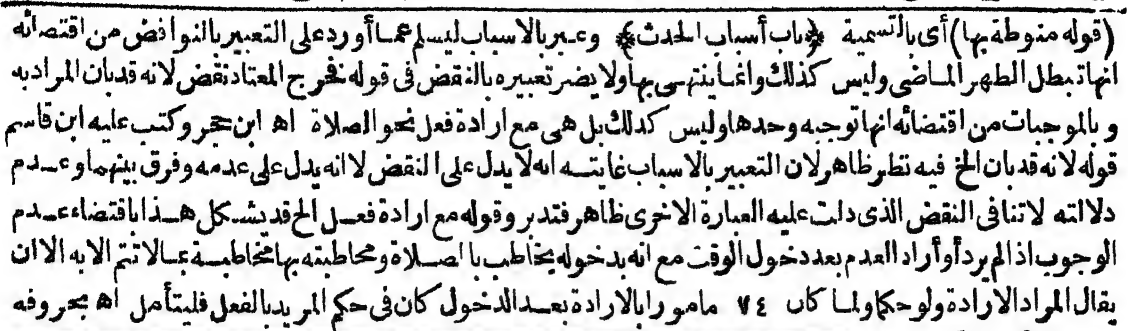 (قوله منوطة بها) أى بالتسمية ﴿باب أسباب الحدث﴾ وعبر بالاسباب ليسلم عما أورد على التعبير بالنواقض من اقتضائه
انها تبطل الطهر الماضى وليس كذلك وانما ينتهى بها ولا يضر تعبيره بالنقض فى قوله فخرج المعتاد نقض لانه قد بان المراد به
وبالموجبات من اقتضائه انها توجبه وحدها وليس كذلك بل هى مع ارادة فعل نحو الصلاة اه ابن حجر وكتب عليه ابن قاسم
قوله لانه قد بان الخ فيه نظر ظاهر لان التعبير بالاسباب غايته انه لا يدل على النقض لا انه يدل على عدمه وفرق بينهما وعدم
دلالته لا تنافى النقض الذى دلت عليه العبارة الاخرى ظاهر فتدبر وقوله مع ارادة فعل الخ قد يشكل هذا باقتضاء عدم
الوجوب اذا لم يرد أو أراد العدم بعد دخول الوقت مع انه بدخوله يخاطب بالصلاة ومخاطبته بها مخاطبة بما لا تتم الا به الا ان
يقال المراد الارادة ولو حكما ولما كان ٧٤ مامورا بالارادة بعد الدخول كان فى حكم المريد بالفعل فليتأمل اه بحروفه